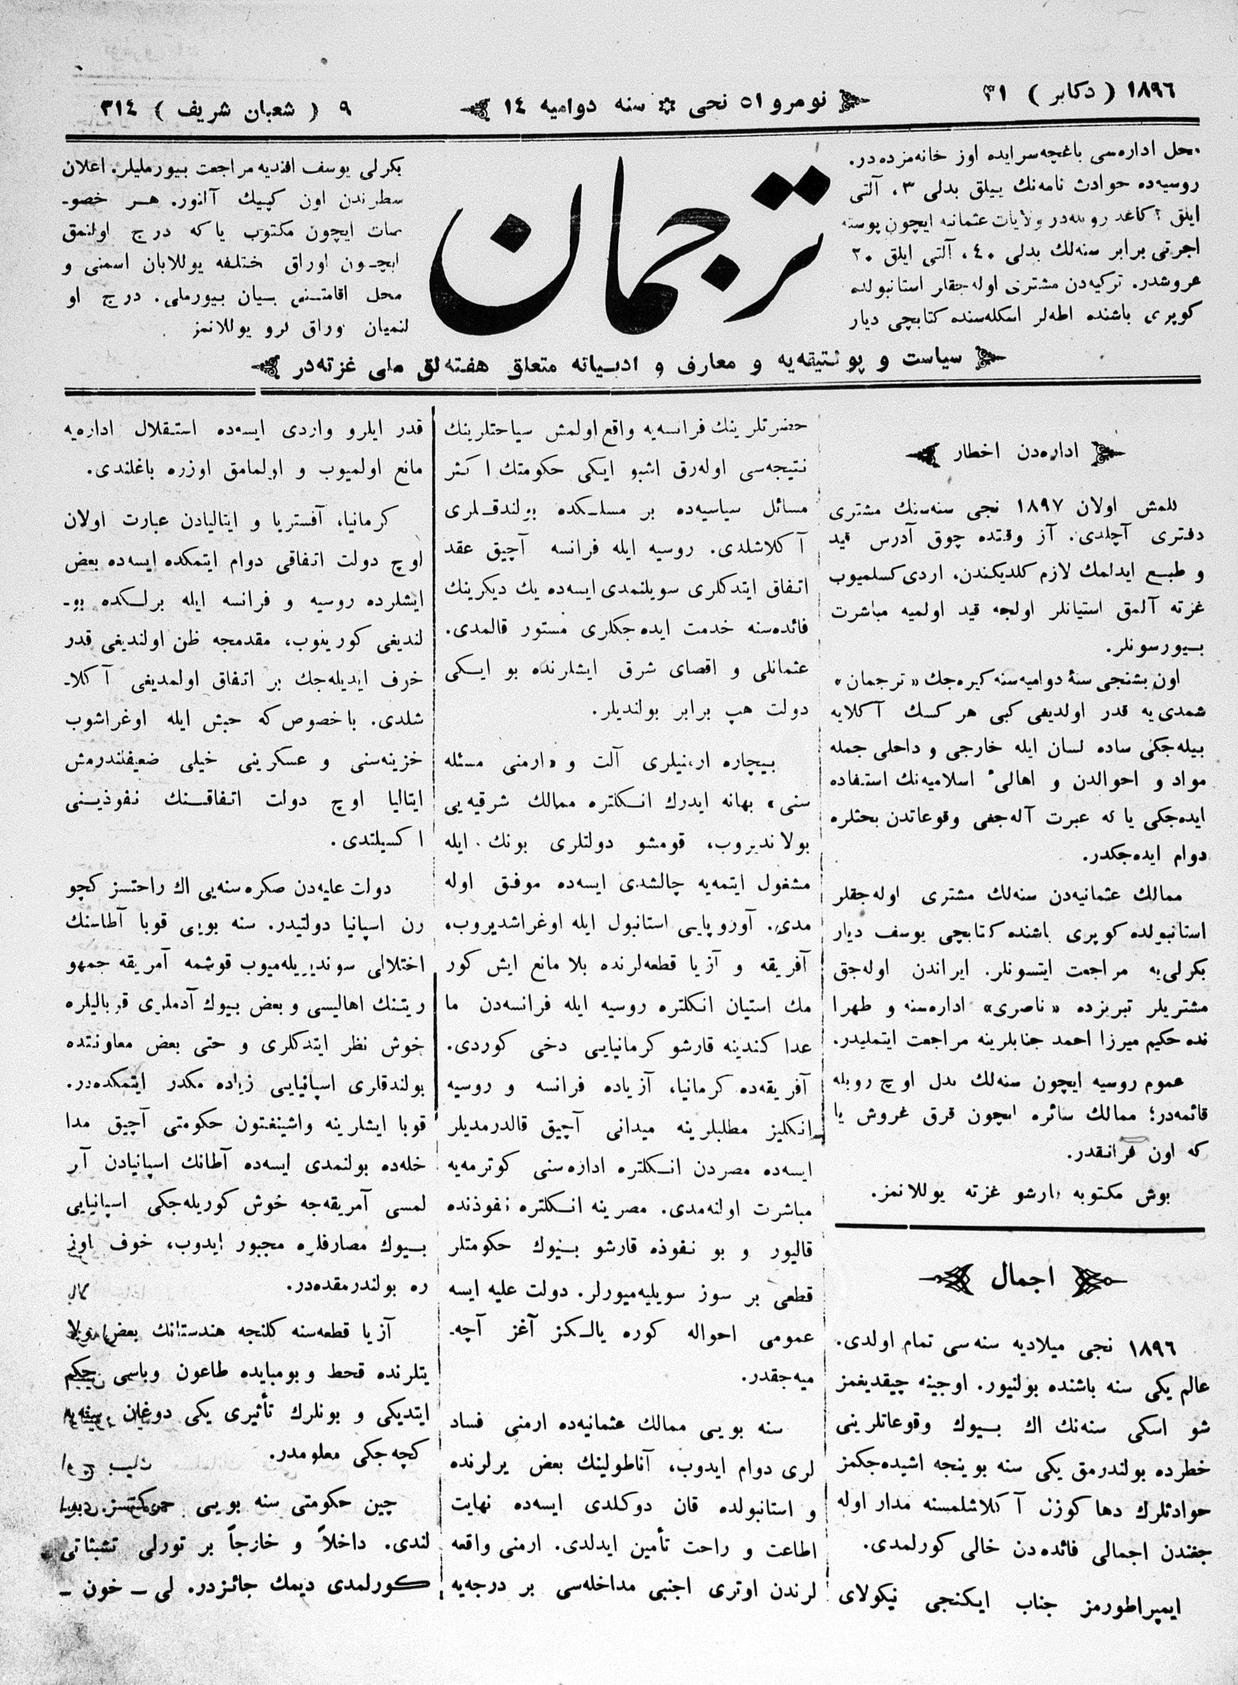 ١٨٩٦ ( دكابر ) ٣١
نومرو ٥١ نجى ✲ سنه دواميه ١٤
٩ ( شعبان شريف ) ٣١٤
محل اداره‌سى باغچه‌سرايده اوز خانه‌مزده‌در.
روسيه‌ده حوادث نامه‌نك ييللق بدلى ٣، آلتى
ايلق ٢ كاغد روبله‌در ولايات عثمانيه ايچون پوسته
اجرتى برابر سنه‌لك بدلى ٤٠، آلتى ايلق ٢٠
غروشدر. تركيه‌دن مشترى اوله‌جقلر استانبولده
كوپرى باشنده اطه‌لر اسكله‌سنده كتابچى ديار
ترجمان
بكرلى يوسف افنديه مراجعت بيورمليلر. اعلان
سطرندن اون كپيك آلنور. هر خصو‍ـ
صات ايچون مكتوب يا كه درج اولنمق
ايچون اوراق مختلفه يوللايان اسمنى و
محل اقامتنى بيان بيورملى. درج او
لنميان اوراق كرو يوللانمز
سياست و پولتيقه‌يه و معارف و ادبياته متعلق هفته‌لق ملى غزته‌در
اداره‌دن اخطار
كلمش اولان ١٨٩٧ نجى سنه‌سنك مشترى
دفترى آچلدى. آز وقتده چوق آدرس قيد
و طبع ايدلمك لازم كلديكندن، اردى كسلميوب
غزته آلمق استيانلر اولجه قيد اولميه مباشرت
بيورسونلر.
اون بشنجى سنهٔ دواميه‌سنه كيره‌جك «ترجمان»
شمدى‌يه قدر اولديغى كبى هر كسك آكلايه
بيله‌جكى ساده لسان ايله خارجى و داخلى جمله
مواد و احوالدن و اهالىٔ اسلاميه‌نك استفاده
ايده‌جكى يا كه عبرت آله‌جغى وقوعاتدن بحثلره
دوام ايده‌جكدر.
ممالك عثمانيه‌دن سنه‌لك مشترى اوله‌جقلر
استانبولده كوپرى باشنده كتابچى يوسف ديار
بكرلى‌يه مراجعت ايتسونلر. ايراندن اوله‌جق
مشتريلر تبريزده «ناصرى» اداره‌سنه و طهرا
نده حكيم ميرزا احمد جنابلرينه مراجعت ايتمليدر.
عموم روسيه ايچون سنه‌لك بدل اوچ روبله
قائمه‌در؛ ممالك سائره ايچون قرق غروش يا
كه اون فرانقدر.
بوش مكتوبه قارشو غزته يوللانمز.
اجمال
١٨٩٦ نجى ميلاديه سنه‌سى تمام اولدى.
عالم يكى سنه باشنده بولنيور. اوجينه چيقديغمز
شو اسكى سنه‌نك اك بيوك وقوعاتلرينى
خطرده بولندرمق يكى سنه بوينجه اشيده‌جكمز
حوادثلرك دها كوزل آكلاشلمسنه مدار اوله
جغندن اجمالى فائده‌دن خالى كورلمدى.
ايمپراطورمز جناب ايكنجى نيكولاى
حضرتلرينك فرانسه‌يه واقع اولمش سياحتلرينك
نتيجه‌سى اوله‌رق اشبو ايكى حكومتك اكثر
مسائل سياسيه‌ده بر مسلكده بولندقلرى
آكلاشلدى. روسيه ايله فرانسه آچيق عقد
اتفاق ايتدكلرى سويلنمدى ايسه‌ده يك ديكرينك
فائده‌سنه خدمت ايده‌جكلرى مستور قالمدى.
عثمانلى و اقصاى شرق ايشلرنده بو ايكى
دولت هپ برابر بولنديلر.
بيچاره ارمنيلرى آلت و «ارمنى مسئله
سنى» بهانه ايدرك انكلتره ممالك شرقيه‌يى
بولانديروب، قومشو دولتلرى بونك ايله
مشغول ايتمه‌يه چالشدى ايسه‌ده موفق اوله
مدى. آوروپايى استانبول ايله اوغراشديروب،
آفريقه و آزيا قطعه‌لرنده بلا مانع ايش كور
مك استيان انكلتره روسيه ايله فرانسه‌دن ما
عدا كندينه قارشو كرمانيايى دخى كوردى.
آفريقه‌ده كرمانيا، آزياده فرانسه و روسيه
انكليز مطلبلرينه ميدانى آچيق قالدرمديلر
ايسه‌ده مصردن انكلتره اداره‌سنى كوترمه‌يه
مباشرت اولنه‌مدى. مصر ينه انكلتره نفوذنده
قاليور و بو نفوذه قارشو بيوك حكومتلر
قطعى بر سوز سويليه‌ميورلر. دولت عليه ايسه
عمومى احواله كوره يالكز آغز آچه‍ـ
ميه‌جقدر.
سنه بويى ممالك عثمانيه‌ده ارمنى فساد
لرى دوام ايدوب، آناطولينك بعض يرلرنده
و استانبولده قان دوكلدى ايسه‌ده نهايت
اطاعت و راحت تأمين ايدلدى. ارمنى واقعه
لرندن اوترى اجنبى مداخله‌سى بر درجه‌يه
قدر ايلرو واردى ايسه‌ده استقلال اداره‌يه
مانع اولميوب و اولمامق اوزره باغلندى.
كرمانيا، آفستريا و ايتاليادن عبارت اولان
اوچ دولت اتفاقى دوام ايتمكده ايسه‌ده بعض
ايشلرده روسيه و فرانسه ايله برلكده بو‍ـ
لنديغى كورينوب، مقدمجه ظن اولنديغى قدر
خوف ايديله‌جك بر اتفاق اولمديغى آكلا‍ـ
شلدى. باخصوص كه حبش ايله اوغراشوب
خزينه‌سنى و عسكرينى خيلى ضعيفلندرمش
ايتاليا اوچ دولت اتفاقنك نفوذينى
اكسيلتدى.
دولت عليه‌دن صكره سنه‌يى اك راحتسز كچو
رن اسپانيا دولتيدر. سنه بويى قوبا آطاسنك
اختلالى سونديريله‌ميوب قوشمه آمريقه جمهو
ريتنك اهاليسى و بعض بيوك آدملرى قوباليلره
خوش نظر ايتدكلرى و حتى بعض معاونتده
بولندقلرى اسپانيايى زياده مكدر ايتمكده‌در.
قوبا ايشلرينه واشينغتون حكومتى آچيق مدا
خله‌ده بولنمدى ايسه‌ده آطانك اسپانيادن آير
لمسى آمريقه‌جه خوش كوريله‌جكى اسپانيايى
بيوك مصارفلره مجبور ايدوب، خوف اوز
ره بولندرمقده‌در.
آزيا قطعه‌سنه كلنجه هندستانك بعض ولا
يتلرنده قحط و بومبايده طاعون وباسى حكم
ايتديكى و بونلرك تأثيرى يكى دوغان سنه‌يه
كچه‌جكى معلومدر.
چين حكومتى سنه بويى حركتسز
لندى. داخلاً و خارجاً بر تورلى تشبثاتى
كورلمدى ديمك جائزدر. لى ـ خون ـ